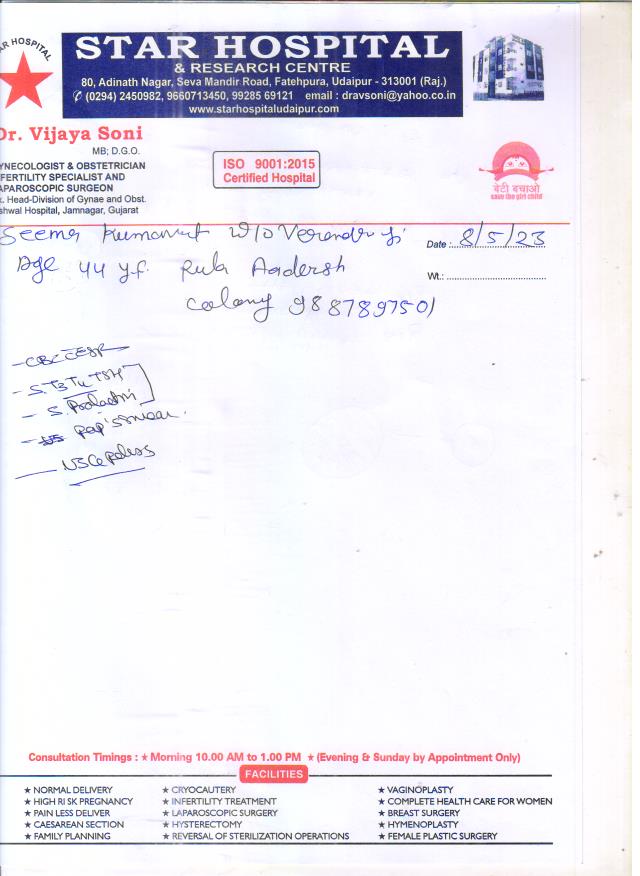 AR HOSPITAL
STAR HOSPITAL
& RESEARCH CENTRE
80, Adinath Nagar, Seva Mandir Road, Fatehpura, Udaipur - 313001 (Raj.)
✆ (0294) 2450982, 9660713450, 99285 69121 email : dravsoni@yahoo.co.in
www.starhospitaludaipur.com
Dr. Vijaya Soni
MB; D.G.O.
YNECOLOGIST & OBSTETRICIAN
FERTILITY SPECIALIST AND
APAROSCOPIC SURGEON
x. Head-Division of Gynae and Obst.
shwal Hospital, Jamnagar, Gujarat
ISO 9001:2015
Certified Hospital
बेटी बचाओ
save the girl child
Seema Kumawat W/o Verendra ji
Date : 8/5/23
Age 44 y.f. Rula Aadersh
Wt.:
Colony 9887897501
- CBC ESR
- S. T3 T4 TSH
- S.
- Pap's smear.
USG Pelvis
Consultation Timings : ★ Morning 10.00 AM to 1.00 PM ★ (Evening & Sunday by Appointment Only)
FACILITIES
★ NORMAL DELIVERY ★ CRYOCAUTERY ★ VAGINOPLASTY
★ HIGH RI SK PREGNANCY ★ INFERTILITY TREATMENT ★ COMPLETE HEALTH CARE FOR WOMEN
★ PAIN LESS DELIVER ★ LAPAROSCOPIC SURGERY ★ BREAST SURGERY
★ CAESAREAN SECTION ★ HYSTERECTOMY ★ HYMENOPLASTY
★ FAMILY PLANNING ★ REVERSAL OF STERILIZATION OPERATIONS ★ FEMALE PLASTIC SURGERY